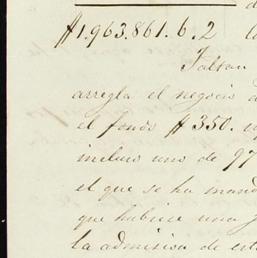 $1.963.861.6.2
Faltan
arregla el negocio
el fondo $350.
incluso uno de 97
el que se ha mand
que hubiese una
la admision de est